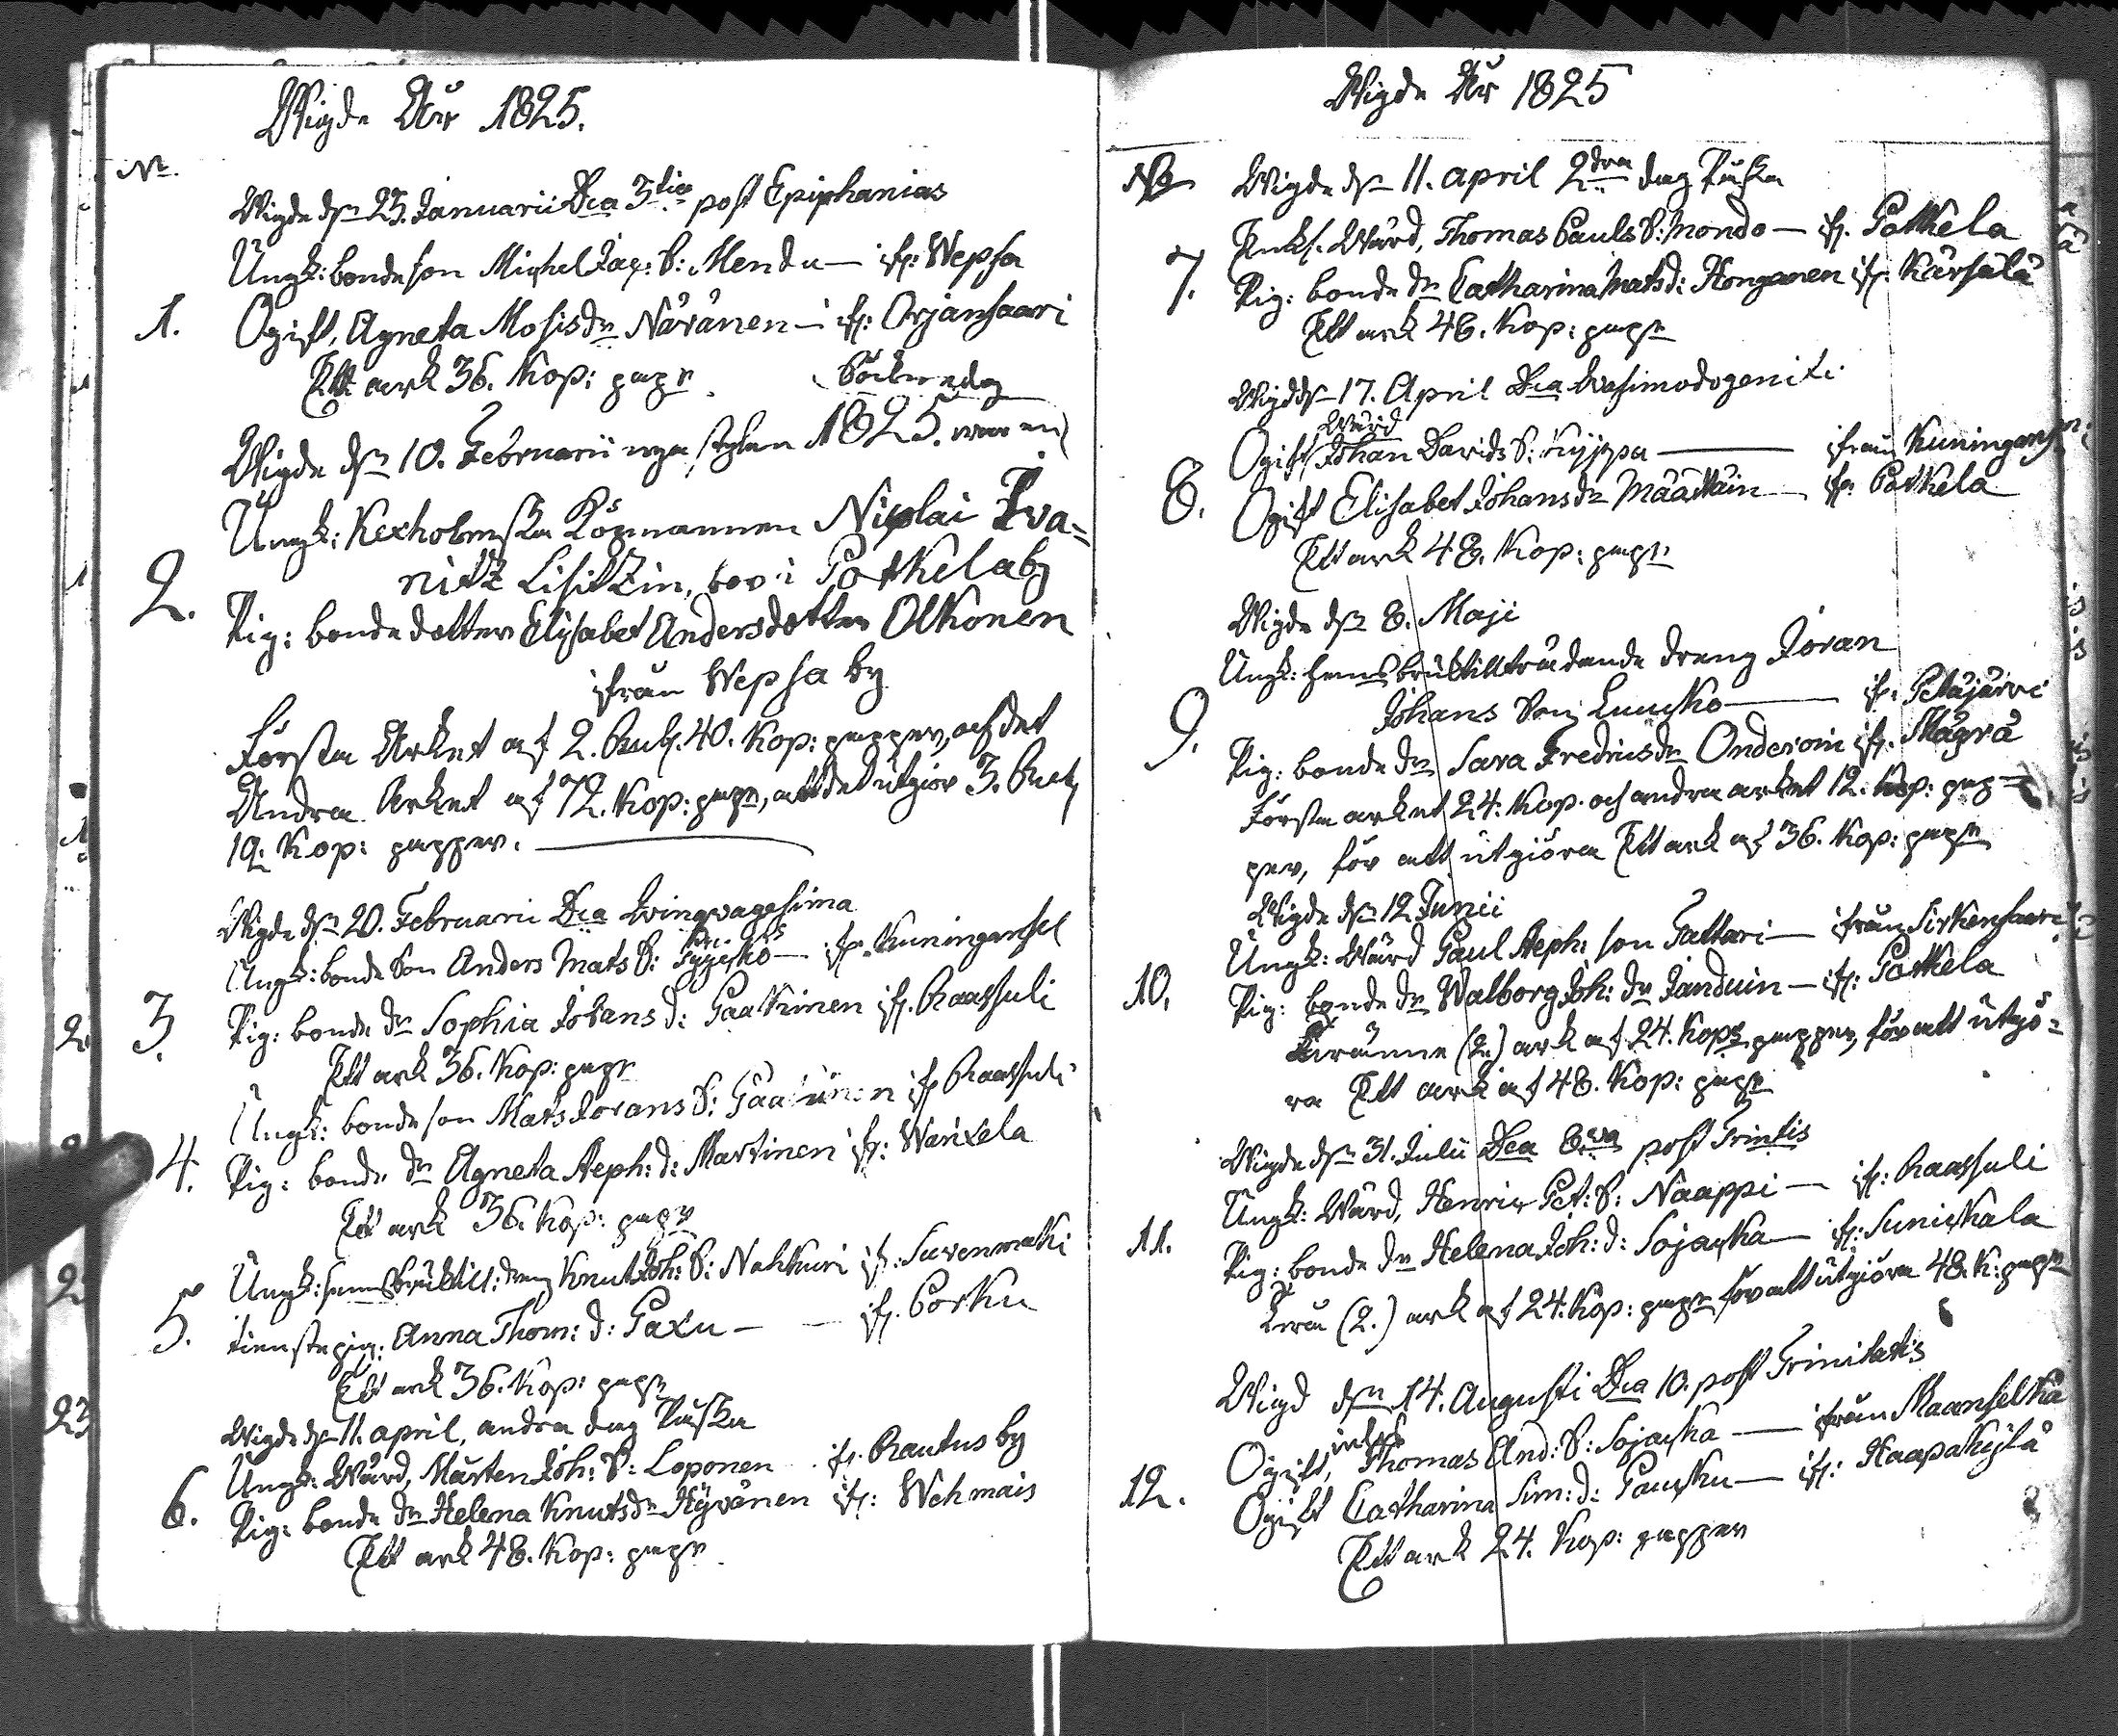 Wigde År 1825.
No.
Wigde dn 25. Januarii Dca 3tia post Epiphanias
Ungk: bondeson Michel Jac: S: Mendu — ifr: Wepsa
1. Ogift, Agneta Mosis dr Näränen — ifr: Orjansaari
Ett ark 36. Kop: papr
Wigde dn 10. Februarii nya stylen 1825. war en Söcknedag
Ungk: Kexholmska Köpmannen Nicolai Iva=
nitz Lisitzin, bor i Potkela by
2. Pig: bondedotter Elisabet Andersdotter Olkonen
ifrån Wepsa by
Första Arket af 2. Rub. 40. Kop: papper, och det
Andra Arket af 72. Kop: papr, att det utgiör 3. Rub
12. Kop: papper.
Wigde dn 20. Februarii Dca Qvinqvagesima
Ungk: bonde Son Anders Mats S: — ifr. Kuningansel
3. Pig: bonde dr Sophia Johans d: Paakkinen ifr. Raassuli
Ett ark 36. Kop: papr
Ungk: bonde son Mats Jörans S: ifr Raassuli
4. Pig: bonde dr Agneta Steph: d: Martinen ifr: Wanxela
Ett ark 36. Kop: papr
Ungk: hemsbruktill: dreng Knut Joh: S: Nakkuri ifr: Suvenmäki
5. tienstepig: Anna Thom: d: Paxu — — ifr. Porku
Ett ark 36. Kop: papr
Wigde dn 11. april, andra dag Påska
Ungk: Wärd, Mårten Joh: S: Loponen ifr. Rautus by
6. Pig: bonde dr Helena Knutsdr Hyvönen ifr: Wehmais
Ett ark 48. Kop: papr
Wigde År 1825
No Wigde dn 11. april 2dra dag Påska
Enkl. Wärd, Thomas Pauls S: Mondo — ifr. Potkela
7. Pig: bonde dr Catharina Mats d: Honganen ifr. Kärsälä
Ett ark 48. Kop: papr
Wigd dn 17. April Dca Qvasimodogeniti
Ogift Wärd Johan Davids S: Kyppa — ifrån Kuningansel
8. Ogift Elisabet Johans dr Määttäin — ifr. Potkela
Ett ark 48. Kop: papr
Wigde dn 8. Maji
Ungk: hemsbruktillträdande dreng Jöran
Johans Son — ifr: Petäjärvi
9. Pig: bonde dr Sara Fredriks dr Onderoin ifr. Mägrä
Första arket 24. Kop. och andra arket 12. Kop: pap=
per, för att utgiöra Ett ark af 36. Kop: papr
Wigde dn 12 Junii
Ungk: Wärd Paul Steph: son Tattari — ifrån Sirkensaari
10. Pig: bonde dr Walborg Joh: dr Janduin — ifr: Potkela
Tvänne (2.) ark af 24. Kops papper, för att utgiö=
ra Ett ark af 48. Kop: papr
Wigde dn 31. Julii Dca 8va post Trintis
Ungk: Wärd, Henric Pet: S: Naappi — ifr: Raassuli
11. Pig: bonde dr Helena Joh: d: Sojacka — ifr: Sunickala
Två (2.) ark af 24. Kop: papr för att utgiöra 48. K: papr
Wigd dn 14. Augusti Dca 10. post Trinitatis
Ogift, inhys Thomas And: S: Sojacka — ifrån Maanselkä
12. Ogift Catharina Sim: d: Paucku — ifr: Haapakylä
Ett ark 24. Kop: papper